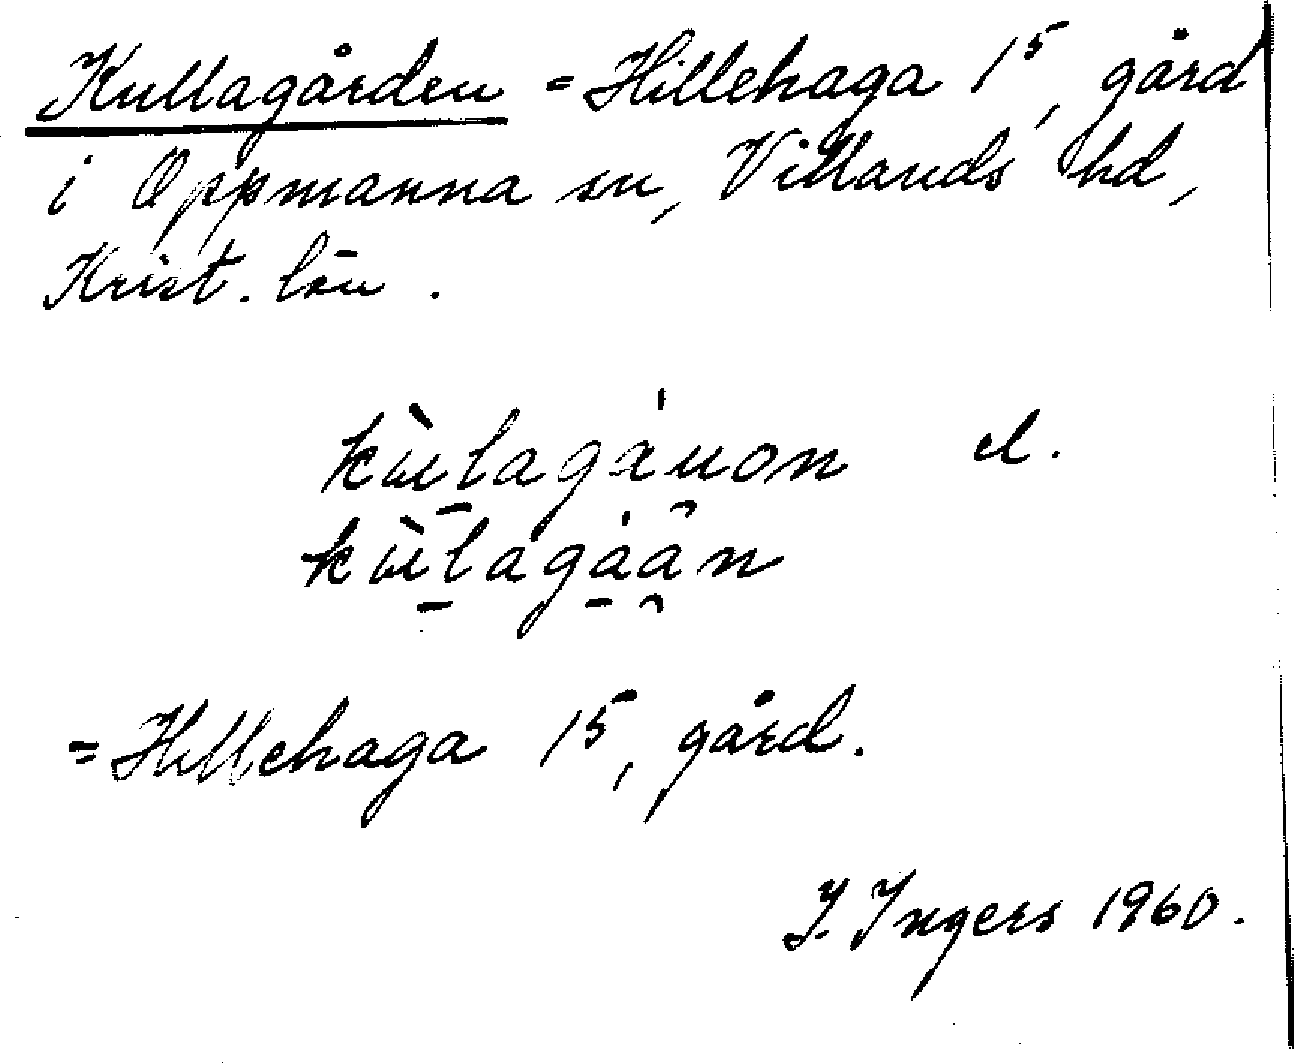 Kullagården = Hillehaga 1⁵, gård
i Oppmanna sn, Villands hd,
Krist. län.
el.
= Hillehaga 15, gård.
I. Ingers 1960.